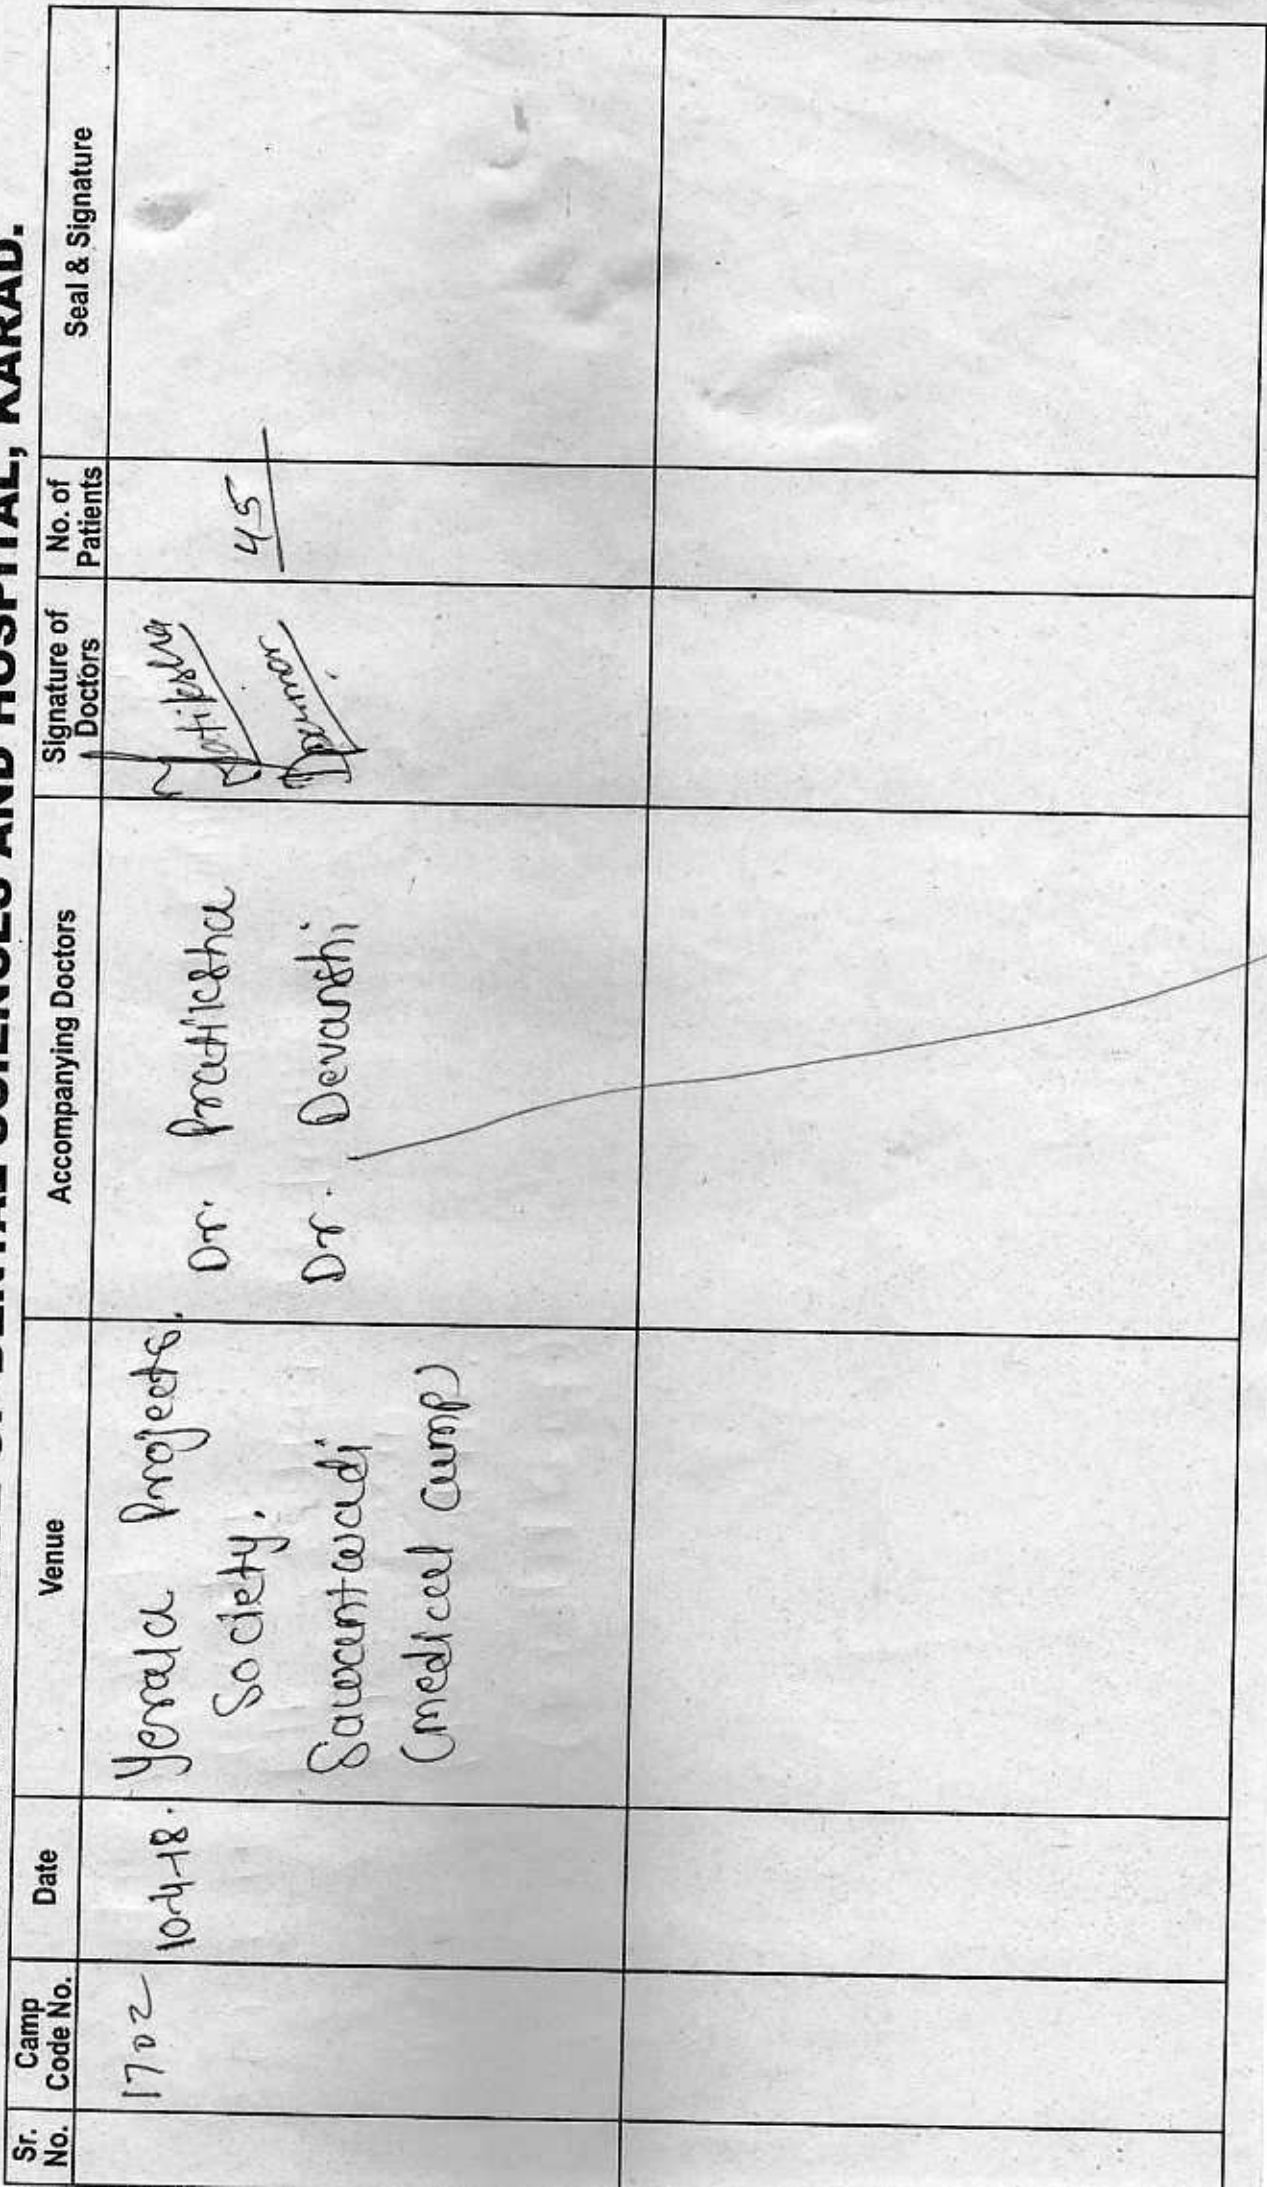 DENTAL SCIENCES AND HOSPITAL, KARAD.
Sr. No.
Camp Code No.
Date
Venue
Accompanying Doctors
Signature of Doctors
No. of Patients
Seal & Signature
1702
10-4-18.
Yerala Projects,
Society.
Sawantwadi
(medical camp)
Dr. Pratiksha
Dr. Devanshi
Pratiksha
45